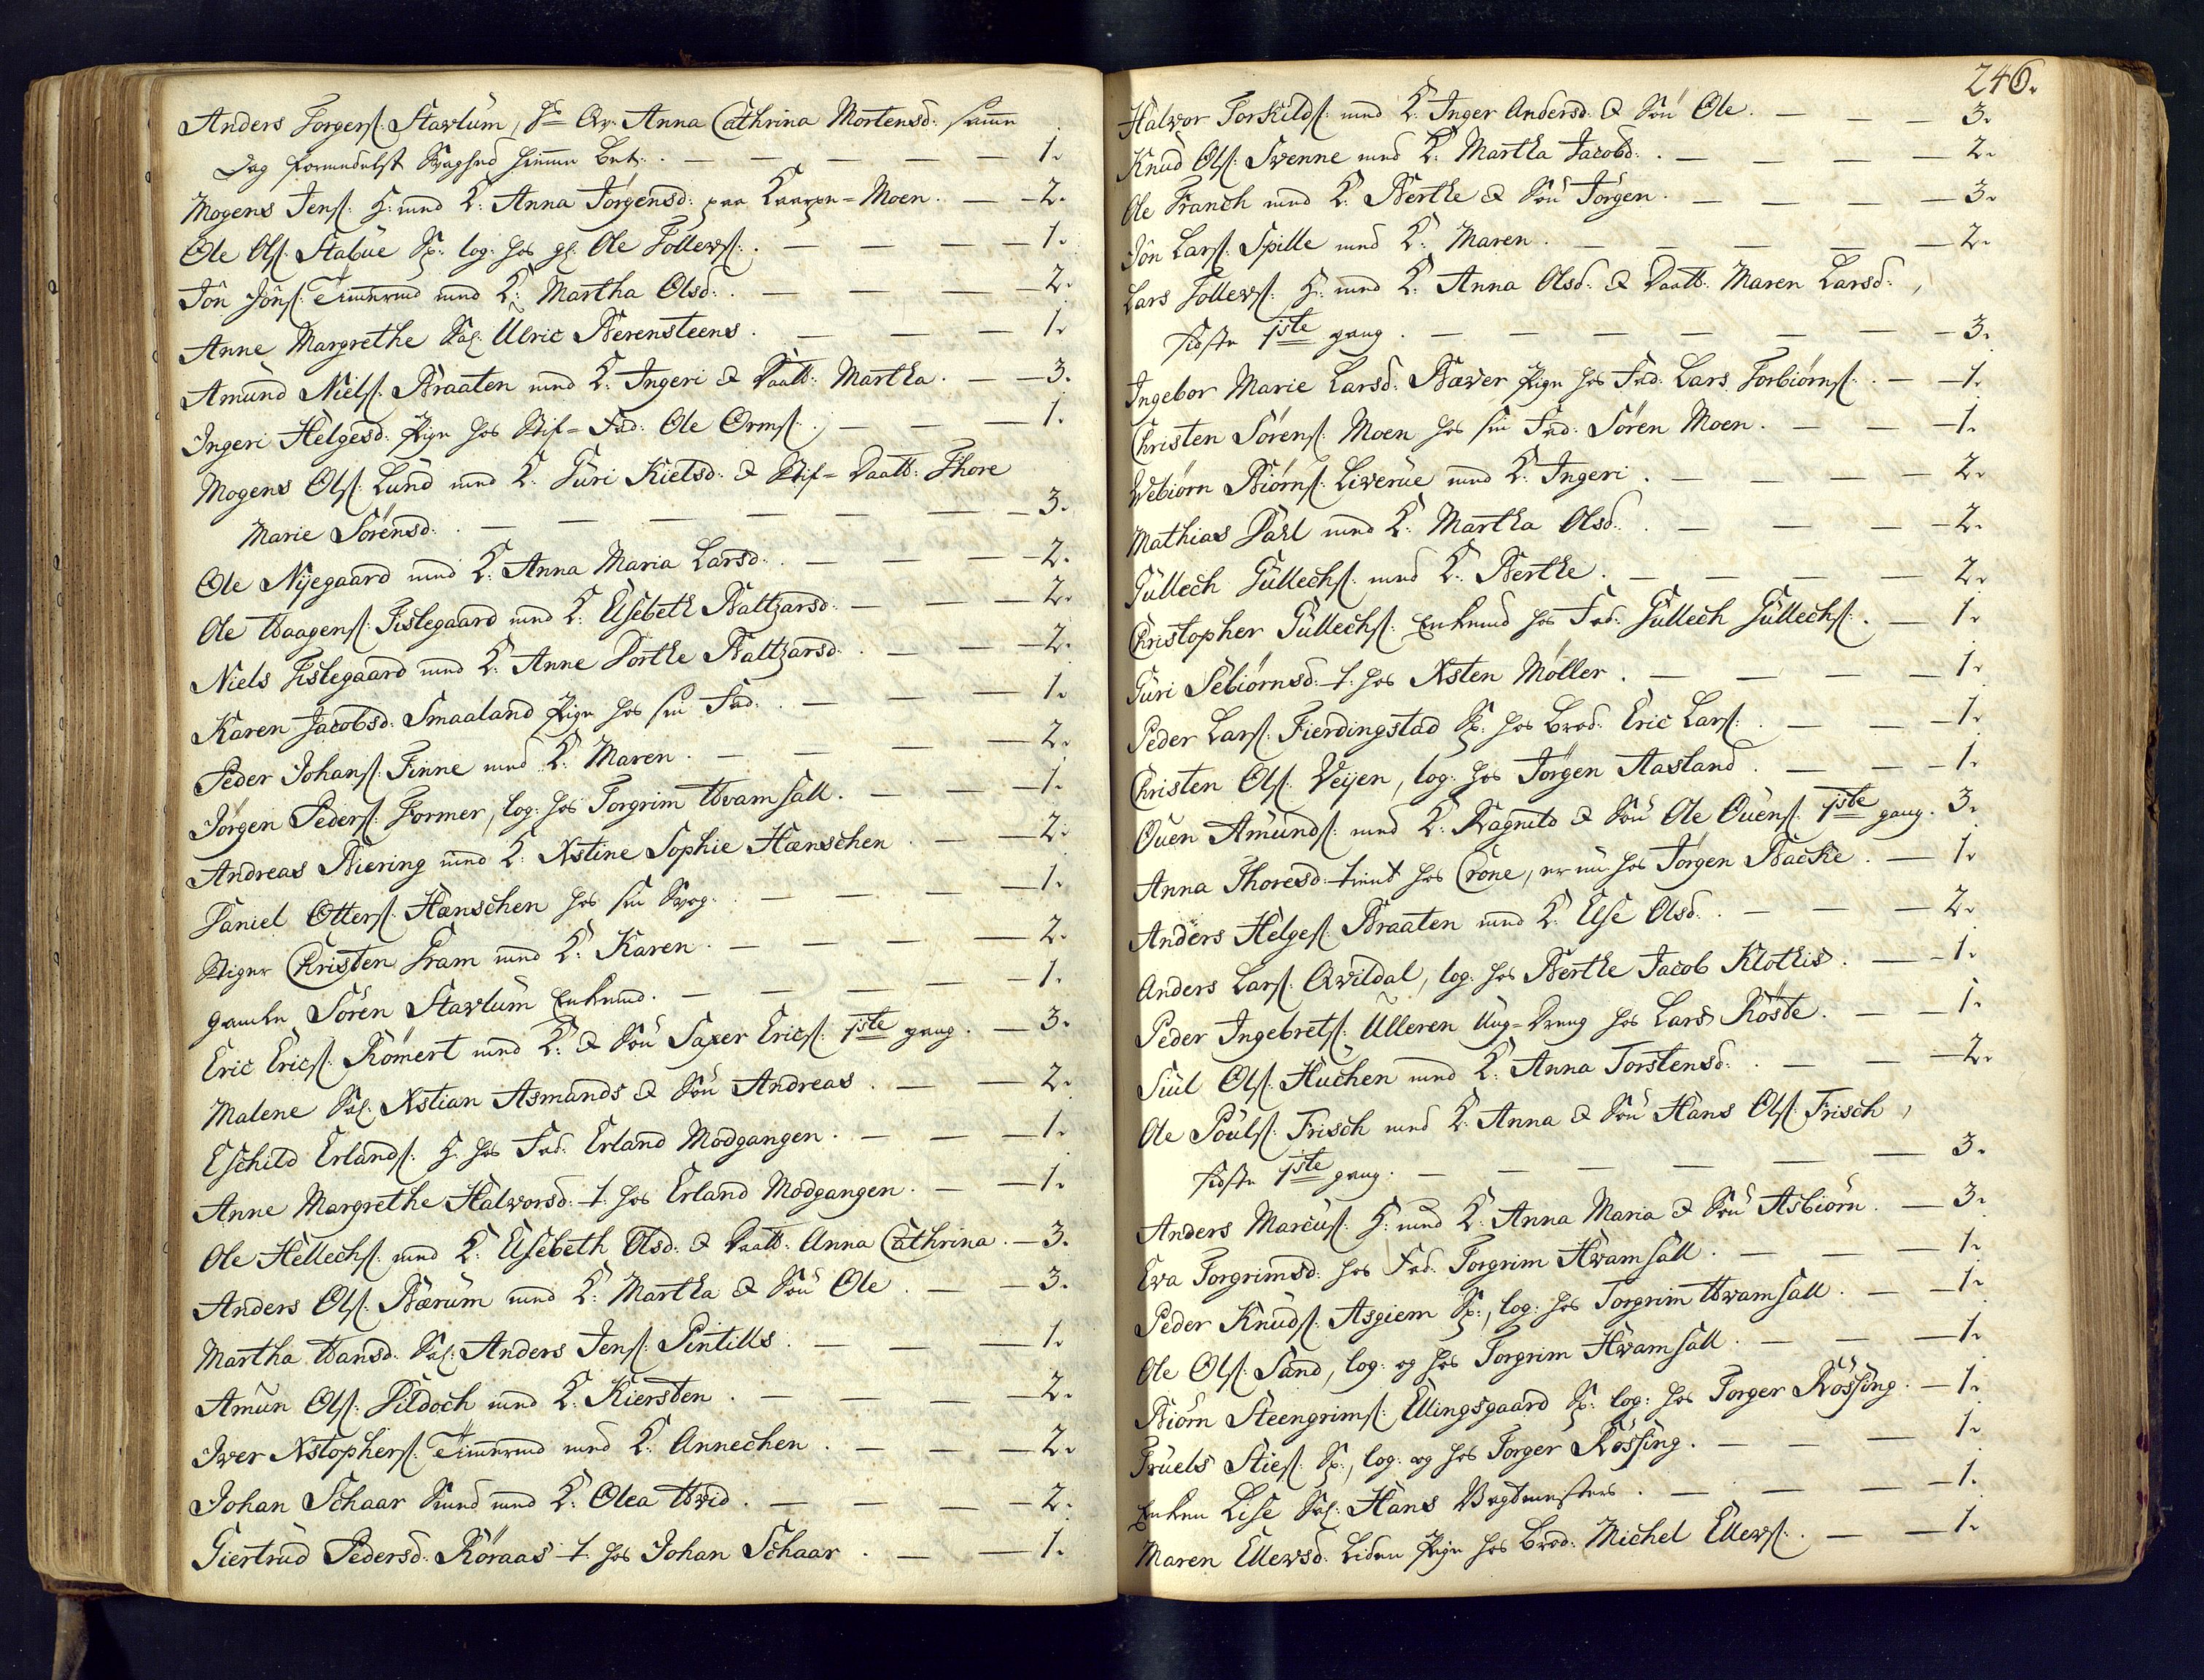 Anders Torgers: Stavlum, Anna Cathrina Mortensd: samme
Dag formedelst Svaghed hiemme bet: . — 1.
Mogens Jens: H: med K: Anna Jörgensd: paa Moen . — 2.
Ole Ols: Stabue Sp: log: hos gl: Ole Tollews: . — 1.
Jön Jöns: Timmermd med K: Martha Olsd: . — 2.
Anne Margrethe Sal: Ulric Berensteens . — 1.
Amund Niels: Braaten med K: Ingeri & Daatt: Martha . — 3.
Ingeri Helgesd: Pige hos Stif=Fad: Ole Orms: . — 1.
Mogens Ols: Lund med K: Guri Kielsd: & Stif=Daatt: Thore
Marie Sörensd: . — 3.
Ole Nyegaard med K: Anna Maria Larsd: . — 2.
Ole Haagens: Fislegaard med K: Elsebeth Baltzarsd: — 2.
Niels Fislegaard med K: Anne Dorthe Baltzarsd: . — 2.
Karen Jacobsd: Smaaland Pige hos sin Fad: . — 1.
Peder Johans: Finne med K: Maren . — 2.
Jörgen Peders: Former, log: hos Torgrim Hvamsall . — 1.
Andreas Biering med K: Xstine Sophie Hænschen . — 2.
Daniel Otters: Hænschen hos sin Svog: . — 1.
Stiger Christen Fram med K: Karen . — 2.
gamle Sören Stavlum Enkemd . — 1.
Eric Erics: Römert med K: & Sön Saxer Erics: 1ste gang . — 3.
Malene Sal: Xstian Asmands & Sön Andreas . — 2.
Eschild Erlands: H: hos Fad: Erland Modgangen . — 1.
Anne Margrethe Halvorsd: t: hos Erland Modgangen . — 1.
Ole Hellechs: med K: Elsebeth Olsd: & Daatt: Anna Cathrina . — 3.
Anders Ols: Bærum med K: Martha & Sön Ole . — 3.
Martha Hansd: Sal: Anders Jens: Pintills . — 1.
Amun Ols: Sildoch med K: Kiersten . — 2.
Iver Xstophers: Timmermd med K: Annechen . — 2.
Johan Schaar Smed med K: Olea Hvid . — 2.
Giertrud Pedersd: Röraas t: hos Johan Schaar . — 1.
246.
Halvor Torkilds: med K: Inger Andersd: & Sön Ole . — 3.
Knud Ols: Svenne med K: Martha Jacobd: . — 2.
Ole Franch med K: Berthe & Sön Jörgen . — 3.
Jön Lars: Spille med K: Maren . — 2.
Lars Tollews: H: med K: Anna Olsd: & Daatt: Maren Larsd: ,
sidste 1ste gang . — 3.
Ingebor Marie Larsd: Bæver Pige hos Fad: Lars Torbiörns: . — 1.
Christen Sörens: Moen hos sin Fad: Sören Moen . — 1.
Vebiörn Biörns: Liverue med K: Ingeri . — 2.
Mathias Dahl med K: Martha Olsd: . — 2.
Gullech Gullechs: med K: Berthe . — 2.
Christopher Gullechs: Enkemd hos Fad: Gullech Gullechs: . — 1.
Guri Sebiörnsd: t: hos Xsten Möller . — 1.
Peder Lars: Fierdingstad Sp: hos Brod: Eric Lars: . — 1.
Christen Ols: Veijen, log: hos Jörgen Aasland . — 1.
Ouen Amunds: med K: Ragnild & Sön Ole Ouens: 1ste gang . 3.
Anna Thoresd: tient hos Crone, er nu hos Jörgen Backe . — 1.
Anders Helges: Braaten med K: Else Olsd: . — 2.
Anders Lars: Qvildal, log: hos Berthe Jacob Klothis . — 1.
Peder Ingebrets: Ulleren Ung=Dreng hos Lars Röste . — 1.
Siul Ols: Huchen med K: Anna Torstensd: . — 2.
Ole Pöuls: Frisch med K: Anna & Sön Hans Ols: Frisch ,
sidste 1ste gang . — 3.
Anders Marcus: H: med K: Anna Maria & Sön Asbiörn . — 3.
Eva Torgrimsd: hos Fad: Torgrim Hvamsall . — 1.
Peder Knuds: Asgiem Sp:, log: hos Torgrim Hvamsall . — 1.
Ole Ols: Sand, log: og hos Torgrim Hvamsall . — 1.
Biörn Steengrims: Ellingsgaard Sp: log: hos Torger Kössing . — 1.
Truels Sties: Sp:, log: og hos Torger Kössing . — 1.
Enken Lise Sal: Hans Vagtmesters . — 1.
Maren Ellewsd: Liden Pige hos Brod: Michel Ellews: . — 1.